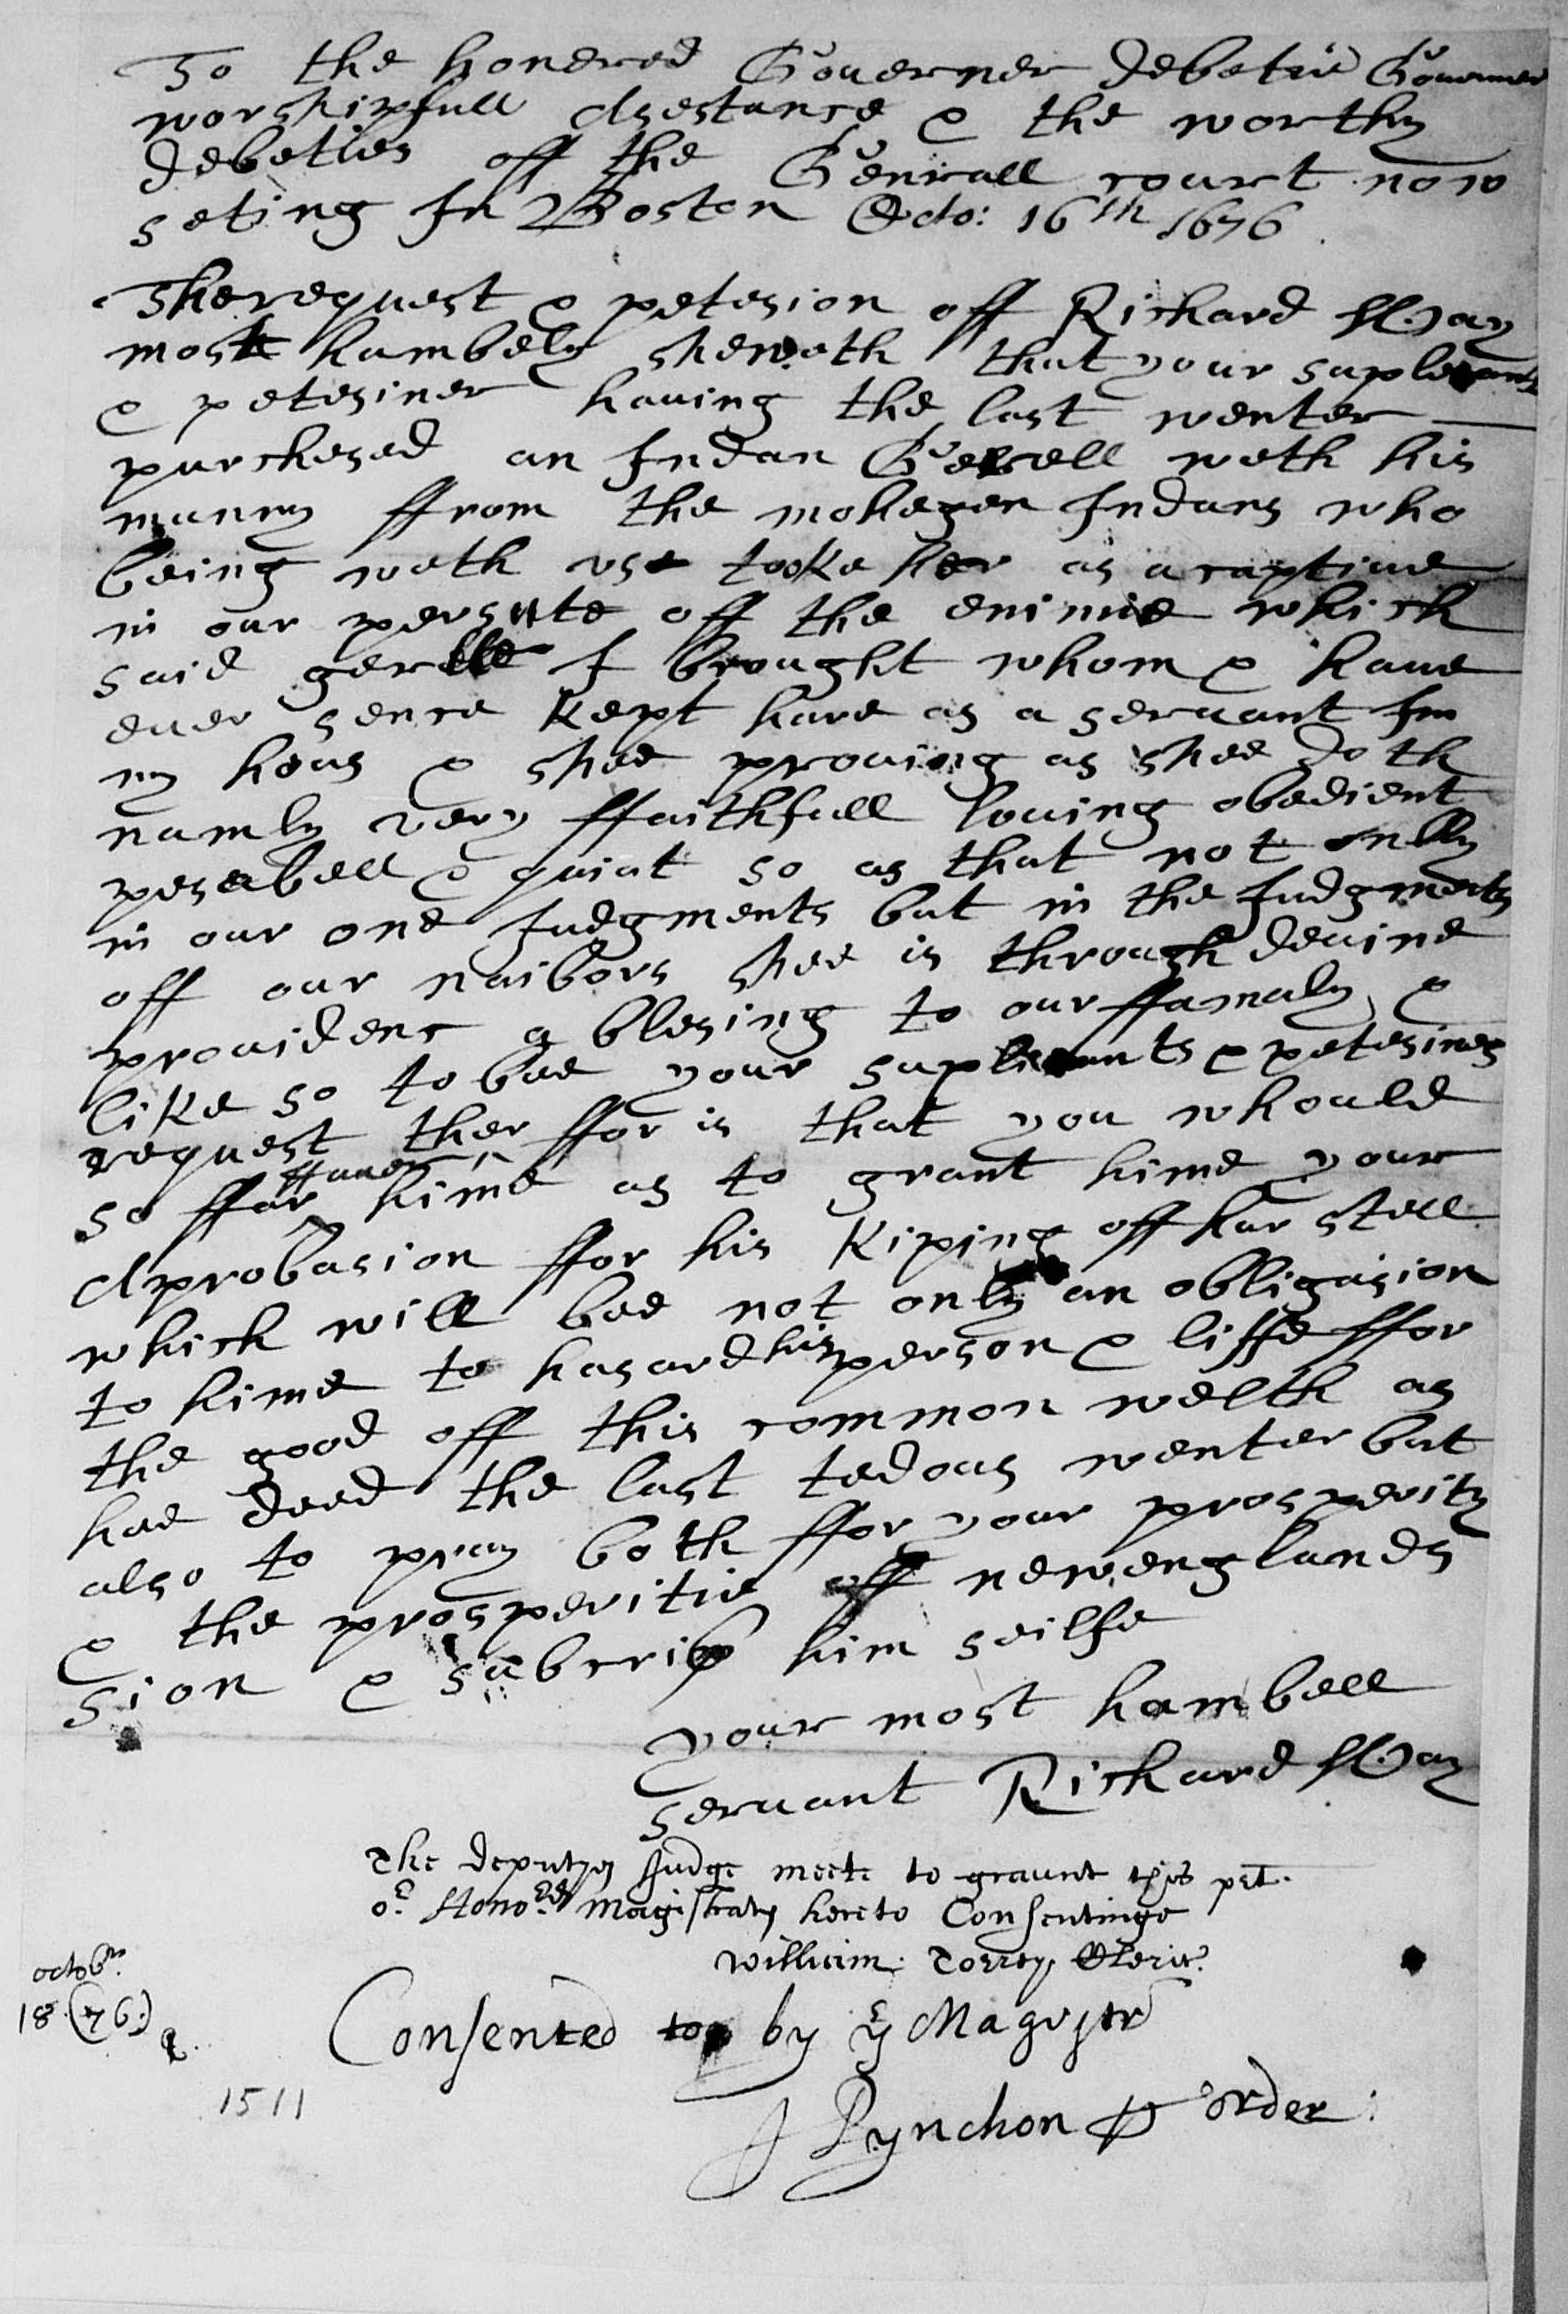 To the honered Gouerner debetie Gouerner
worshipfull Asestance & the worthy
debeties off the Generall court now
seting In Boston Octo: 16th 1676
The request & petesion off Richard Way
most humbely sheweth that your suplecants
& petesiner hauing the last wenter
purchesed an Indan Gerell weth his
munny ffrom the mohegen Indans who
being weth use tooke her as a captiue
in our persute off the eninmie which
said gerelle I brought whom & haue
euer sence kept hare as a seruant Im
my hous & shee prouing as shee doth
namly very ffaithfull louing obedient
pesabell & quiat so as that not onlly
in our one Judgments but in the Judgments
off our naibors shee is through deuine
prouidenc a blesing to our ffamaly &
like so to bee your suplicants & petesiners
request ther ffor is that you whould
so ffar ffauer hime as to grant hime your
Aprobasion ffor his kiping off har stell
which will bee not only an obligasion
to hime to hasard his person & liffe ffor
the good off this common welth as
hee deed the last tedous wenter but
also to pray both ffor your prosperity
& the prosperitie off newenglands
sion & subcrip him seilfe
your most hambell
seruant Richard Way
The deputyes Judge meete to graunt this pet.
or Honored magistrats hereto Consentinge
William Torrey Cleric.
octobr
18. (76.)
Consented to by ye Magistr
J Pynchon p order:
1511